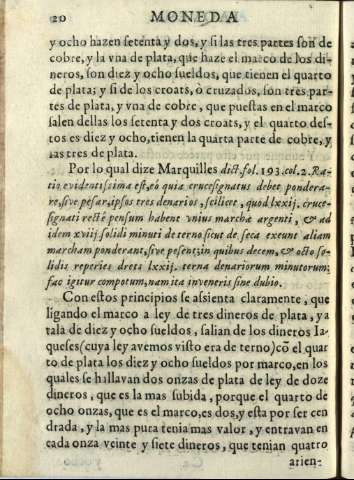 20 MONEDA
y ocho hazen setenta y dos, y si las tres partes son de
cobre, y la vna de plata, que haze el marco de los di-
neros, son diez y ocho sueldos, que tienen el quarto
de plata; y si de los croats, ò cruzados, son tres par-
tes de plata, y vna de cobre, que puestas en el marco
salen dellas los setenta y dos croats, y el quarto des-
tos es diez y ocho, tienen la quarta parte de cobre, y
las tres de plata.
Por lo qual dize Marquilles dict. fol. 193. col. 2. Ra-
tio evidentissima est, eò quia crucesignatus debet pondera-
re, sive pesar, ipsos tres denarios, scilicet, quod lxxij. cruce-
signati rectè pensum habent vnius marchæ argenti, & ad
idem xviij. solidi minuti de terno sicut de seca exeunt aliam
marcham ponderant, sive pesent; in quibus decem, & octo so-
lidis reperies drets lxxij. terna denariorum minutorum;
fac igitur compotum, nam ita inveneris sine dubio.
Con estos principios se assienta claramente, que
ligando el marco a ley de tres dineros de plata, y a
tala de diez y ocho sueldos, salian de los dineros Ia-
queses (cuya ley avemos visto era de terno) cō el quar
to de plata los diez y ocho sueldos por marco, en los
quales se hallavan dos onzas de plata de ley de doze
dineros, que es la mas subida, porque el quarto de
ocho onzas, que es el marco, es dos, y esta por ser cen
drada, y la mas pura tenia mas valor, y entravan en
cada onza veinte y siete dineros, que tenian quatro
arien-